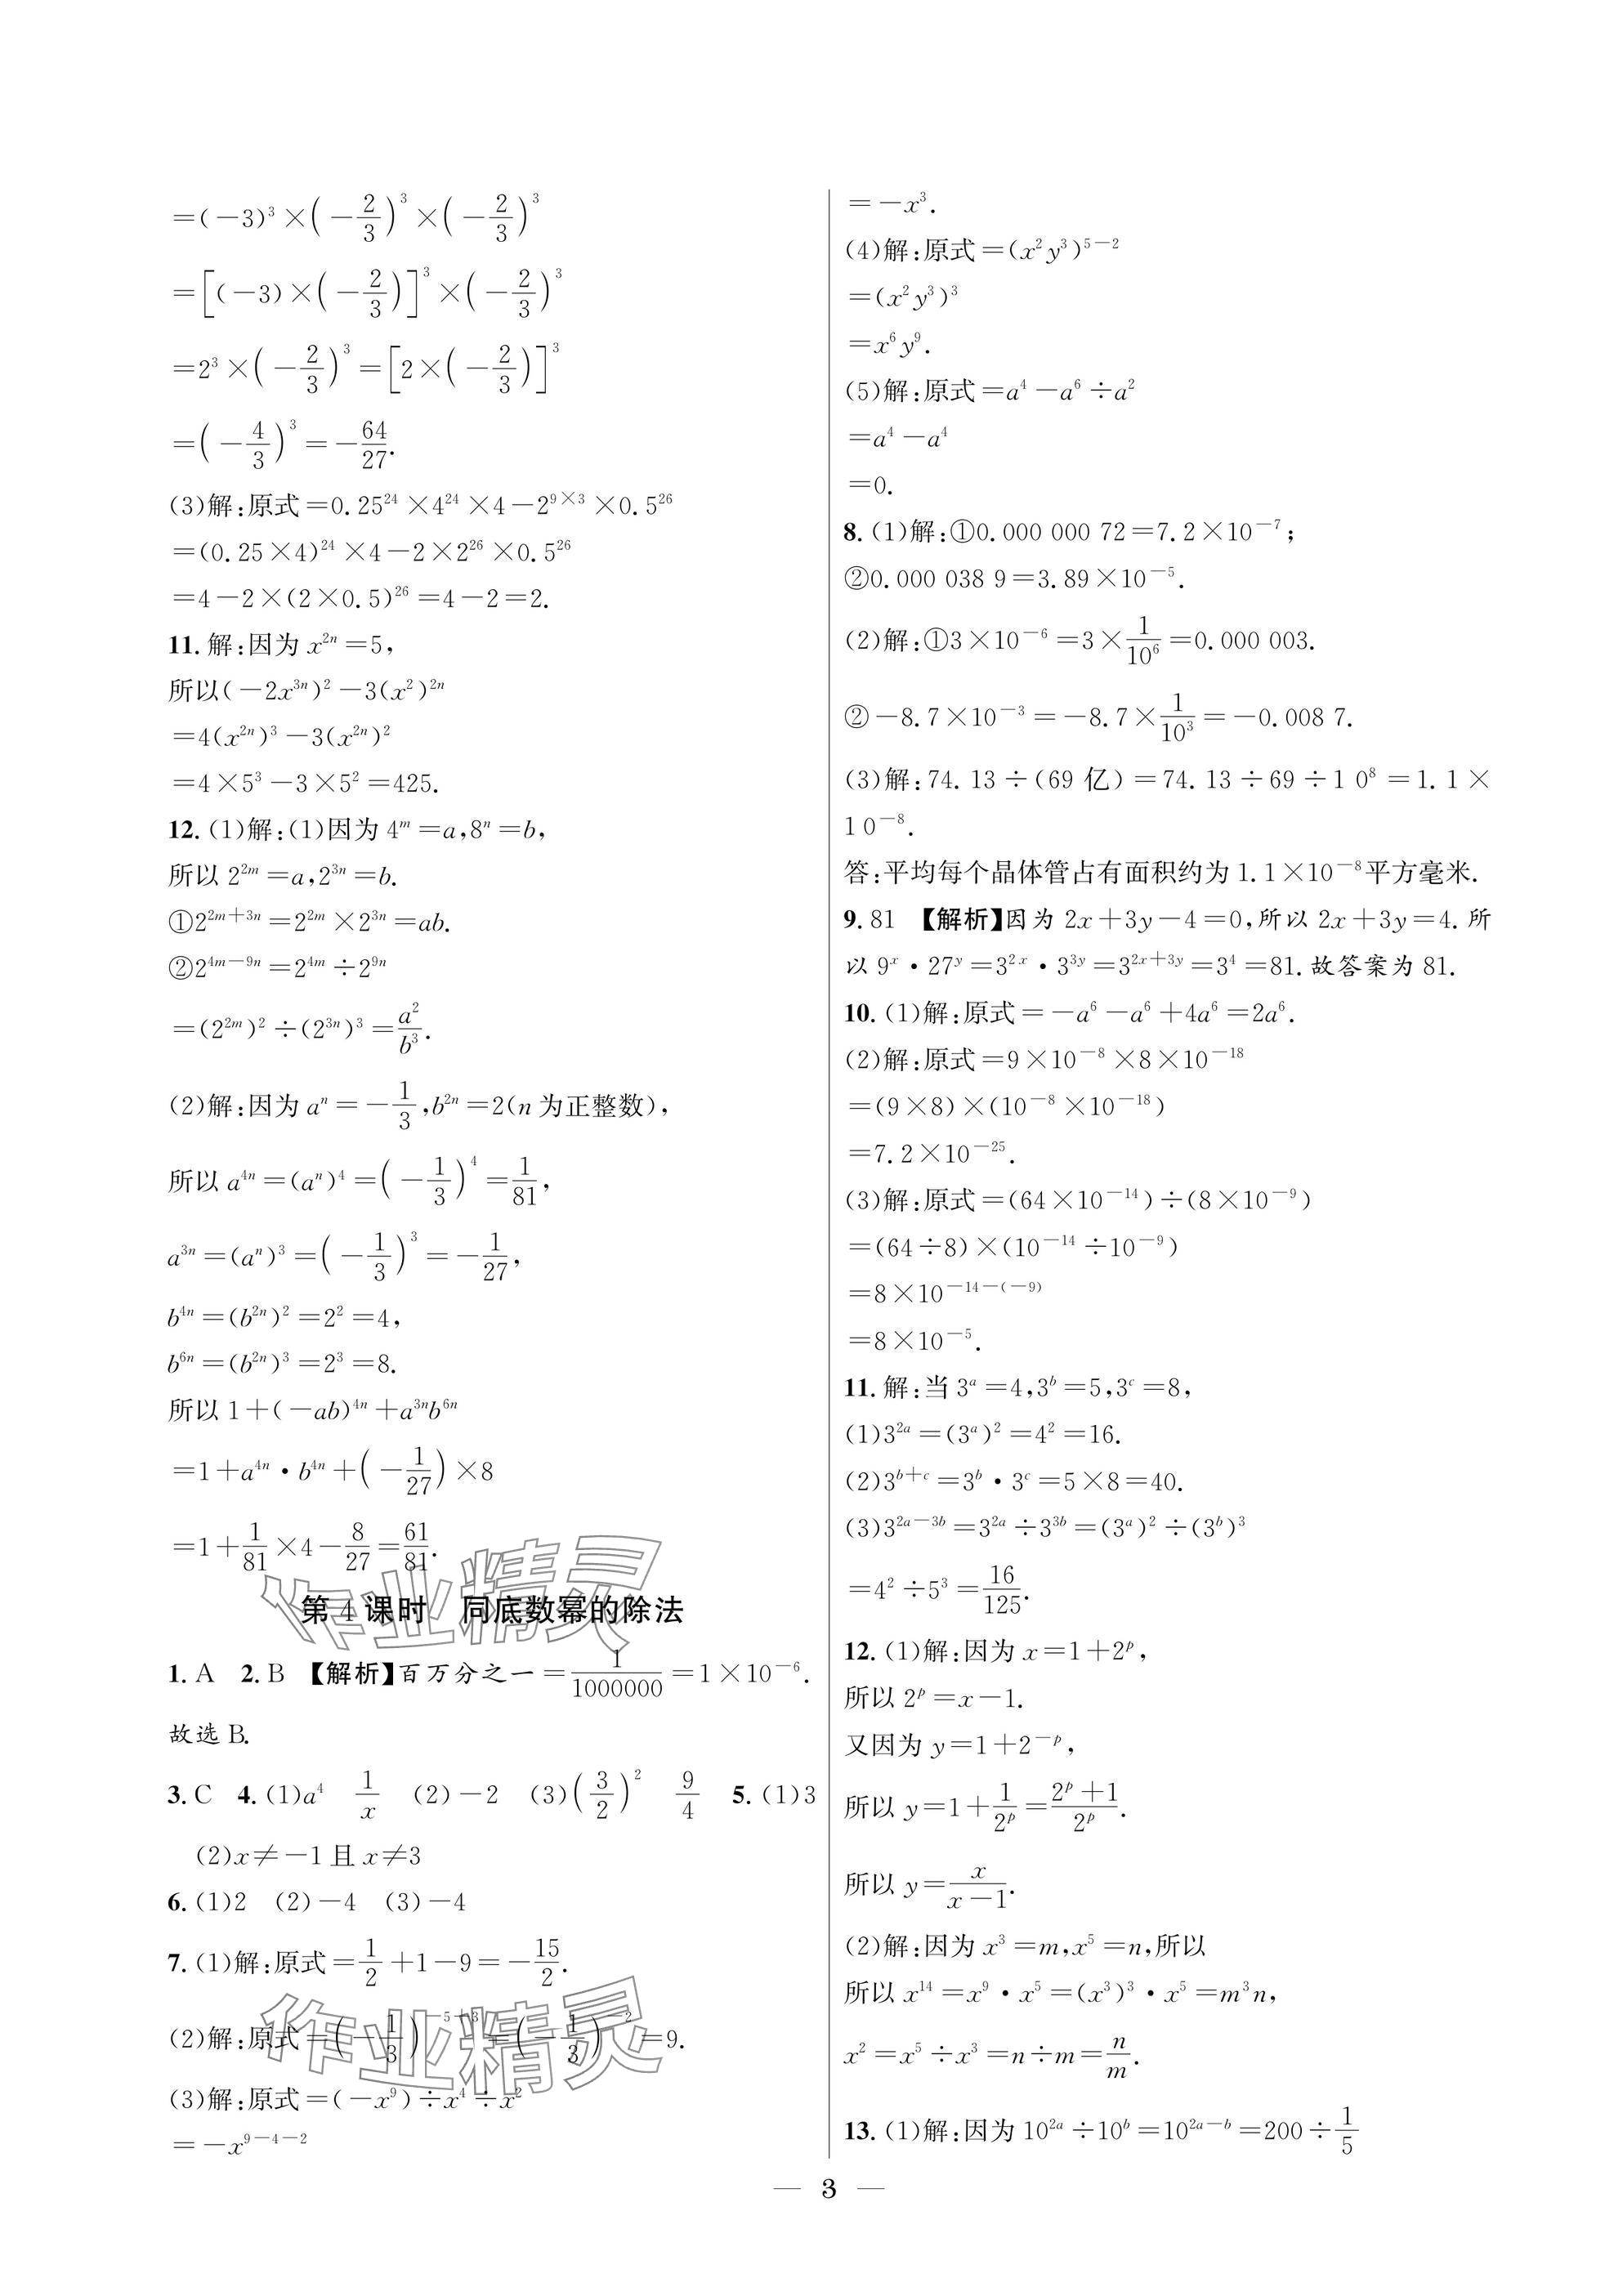 =(-3)³×(-2/3)³×(-2/3)³
=[(-3)×(-2/3)]³×(-2/3)³
=2³×(-2/3)³=[2×(-2/3)]³
=(-4/3)³=-64/27.
(3)解:原式=0.25²⁴×4²⁴×4-2^(9×3)×0.5²⁶
=(0.25×4)²⁴×4-2×2²⁶×0.5²⁶
=4-2×(2×0.5)²⁶=4-2=2.
11.解:因为 x^(2n)=5,
所以(-2x^(3n))²-3(x²)^(2n)
=4(x^(2n))³-3(x^(2n))²
=4×5³-3×5²=425.
12.(1)解:(1)因为 4^m=a,8^n=b,
所以 2^(2m)=a,2^(3n)=b.
①2^(2m+3n)=2^(2m)×2^(3n)=ab.
②2^(4m-9n)=2^(4m)÷2^(9n)
=(2^(2m))²÷(2^(3n))³=a²/b³.
(2)解:因为 a^n=-1/3,b^(2n)=2(n 为正整数),
所以 a^(4n)=(a^n)⁴=(-1/3)⁴=1/81,
a^(3n)=(a^n)³=(-1/3)³=-1/27,
b^(4n)=(b^(2n))²=2²=4,
b^(6n)=(b^(2n))³=2³=8.
所以 1+(-ab)^(4n)+a^(3n)b^(6n)
=1+a^(4n)·b^(4n)+(-1/27)×8
=1+1/81×4-8/27=61/81.
作业精灵
第 4 课时 同底数幂的除法
1.A 2.B 【解析】百万分之一=1/1000000=1×10⁻⁶.
故选 B.
3.C 4.(1)a⁴ 1/x (2)-2 (3)(3/2)² 9/4 5.(1)3
(2)x≠-1 且 x≠3
6.(1)2 (2)-4 (3)-4
7.(1)解:原式=1/2+1-9=-15/2.
作业精灵
(2)解:原式=(-1/3)^(-5+3)=(-1/3)⁻²=9.
(3)解:原式=(-x⁹)÷x⁴÷x²
=-x^(9-4-2)
=-x³.
(4)解:原式=(x²y³)^(5-2)
=(x²y³)³
=x⁶y⁹.
(5)解:原式=a⁴-a⁶÷a²
=a⁴-a⁴
=0.
8.(1)解:①0.000 000 72=7.2×10⁻⁷;
②0.000 038 9=3.89×10⁻⁵.
(2)解:①3×10⁻⁶=3×1/10⁶=0.000 003.
②-8.7×10⁻³=-8.7×1/10³=-0.008 7.
(3)解:74.13÷(69 亿)=74.13÷69÷10⁸=1.1×
10⁻⁸.
答:平均每个晶体管占有面积约为 1.1×10⁻⁸平方毫米.
9.81 【解析】因为 2x+3y-4=0,所以 2x+3y=4.所
以 9^x·27^y=3^(2x)·3^(3y)=3^(2x+3y)=3⁴=81.故答案为 81.
10.(1)解:原式=-a⁶-a⁶+4a⁶=2a⁶.
(2)解:原式=9×10⁻⁸×8×10⁻¹⁸
=(9×8)×(10⁻⁸×10⁻¹⁸)
=7.2×10⁻²⁵.
(3)解:原式=(64×10⁻¹⁴)÷(8×10⁻⁹)
=(64÷8)×(10⁻¹⁴÷10⁻⁹)
=8×10^(-14-(-9))
=8×10⁻⁵.
11.解:当 3^a=4,3^b=5,3^c=8,
(1)3^(2a)=(3^a)²=4²=16.
(2)3^(b+c)=3^b·3^c=5×8=40.
(3)3^(2a-3b)=3^(2a)÷3^(3b)=(3^a)²÷(3^b)³
=4²÷5³=16/125.
12.(1)解:因为 x=1+2^p,
所以 2^p=x-1.
又因为 y=1+2^(-p),
所以 y=1+1/2^p=(2^p+1)/2^p.
所以 y=x/(x-1).
(2)解:因为 x³=m,x⁵=n,所以
所以 x¹⁴=x⁹·x⁵=(x³)³·x⁵=m³n,
x²=x⁵÷x³=n÷m=n/m.
13.(1)解:因为 10^(2a)÷10^b=10^(2a-b)=200÷1/5
— 3 —